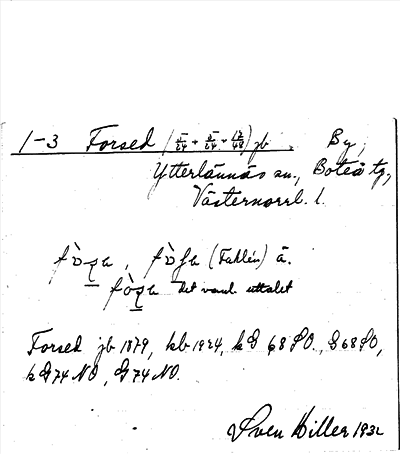 1-3 Forsed (5/24 + 5/24 + 12/48) jb. By,
Ytterlännäs sn., Boteå tg,
Västernorrl. l.
(Fahlén) ä.
det vanl. uttalet
Forsed jb 1879, kb 1924, kG 68 SO., G 68 SO,
kG 74 NO, G 74 NO.
Sven Hiller 1932